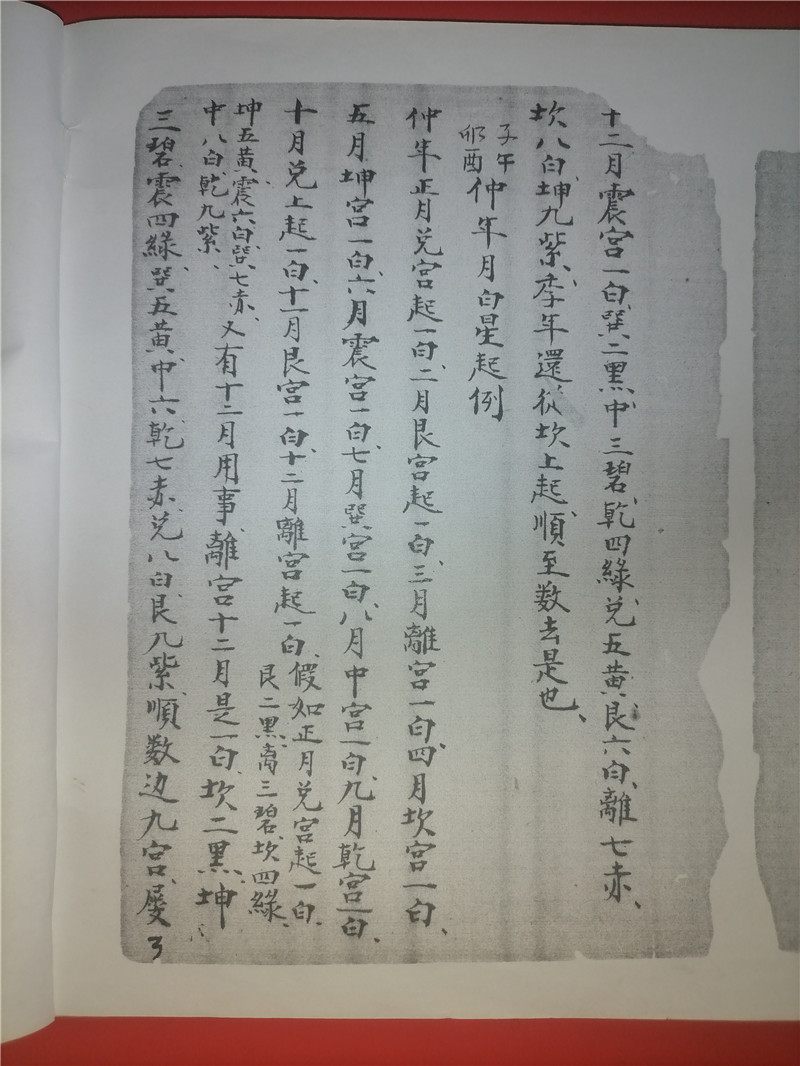 十二月震宮一白、巽二黑、中三碧、乾四綠、兌五黃、艮六白、離七赤、
坎八白、坤九紫、季年還從坎上起、順至数去是也、
子午
卯酉
仲年月白星起例
仲年正月兌宮起一白、二月艮宮起一白、三月離宮一白、四月坎宮一白、
五月坤宮一白、六月震宮一白、七月巽宮一白、八月中宮一白、九月乾宮一白、
十月兌上起一白、十一月艮宮一白、十二月離宮起一白、
假如正月兌宮起一白、
艮二黑、离三碧、坎四綠、
坤五黃、震六白、巽七赤、
中八白、乾九紫、
又有十二月用事、離宮十二月是一白、坎二黑、坤
三碧、震四綠、巽五黃、中六、乾七赤、兌八白、艮九紫、順数边九宮、